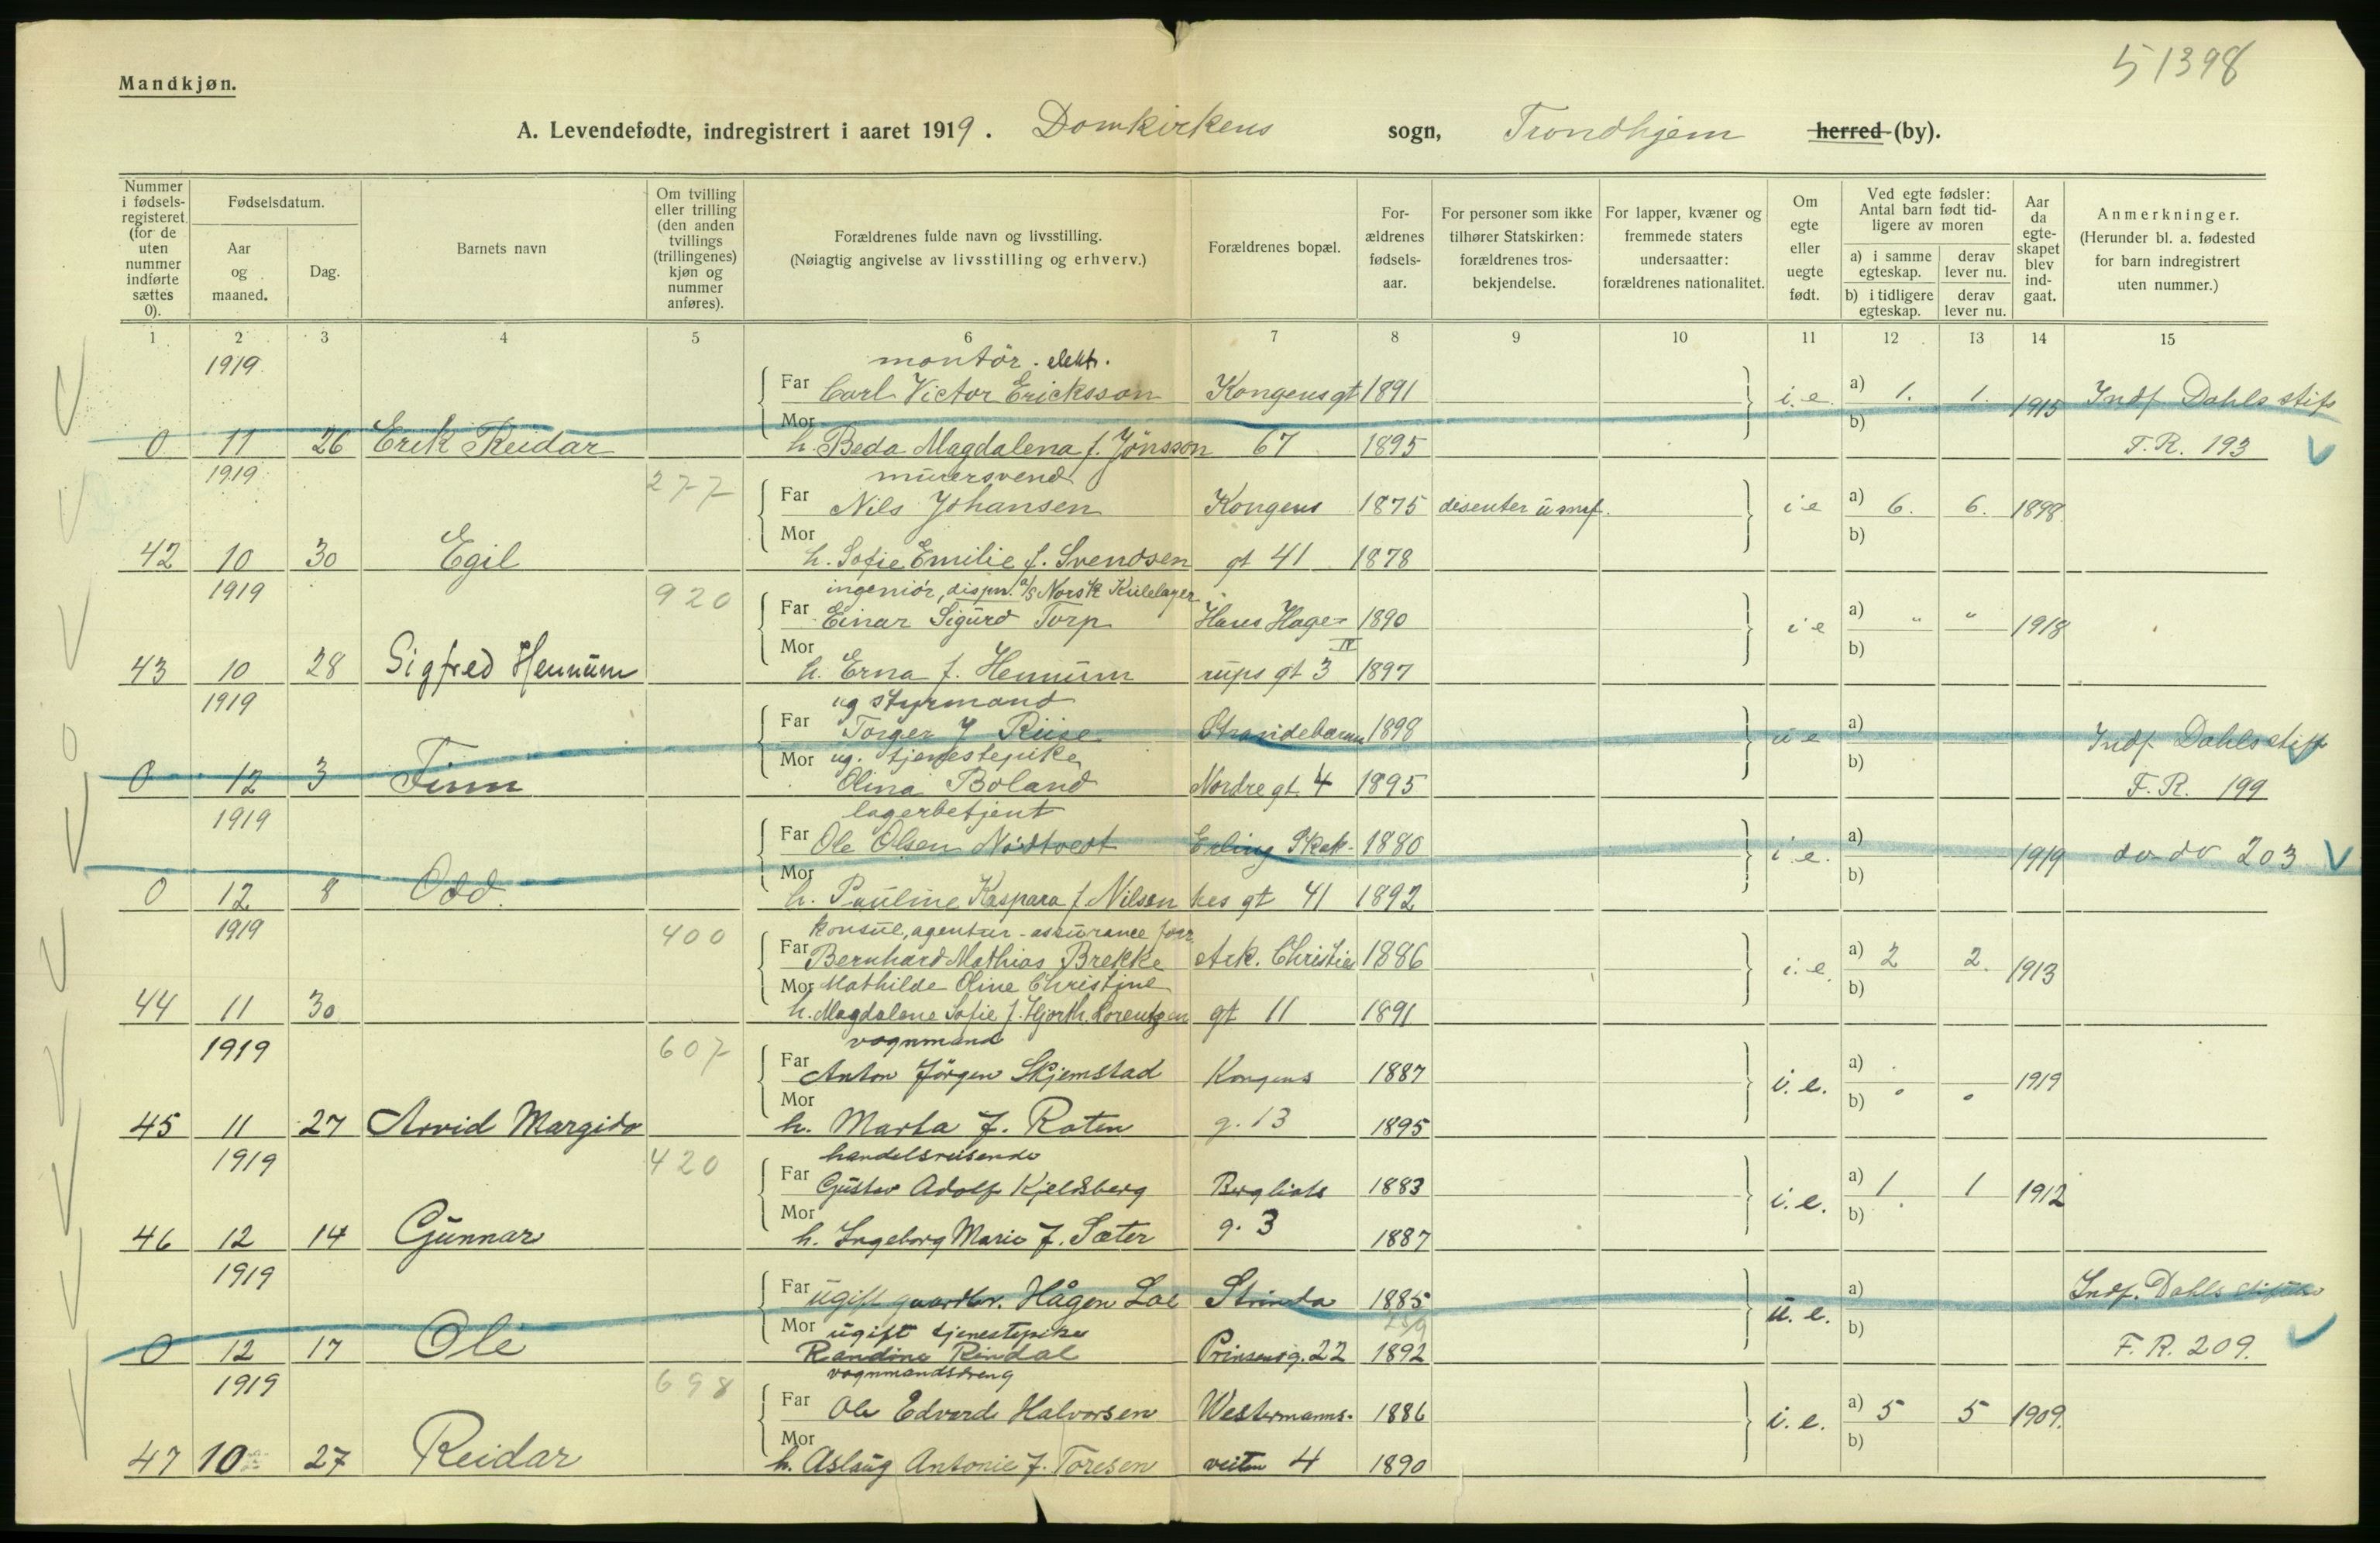 51398
Mandkjøn.
A. Levendefødte, indregistrert i aaret 1919. Domkirkens sogn, Trondhjem herred (by).
Nummer i fødselsregisteret (for de uten nummer indførte sættes 0).
Fødselsdatum.
Aar og maaned.
Dag.
Barnets navn
Om tvilling eller trilling (den anden tvillings (trillingenes) kjøn og nummer anføres).
Forældrenes fulde navn og livsstilling.
(Nøiagtig angivelse av livsstilling og erhverv.)
Forældrenes bopæl.
Forældrenes fødselsaar.
For personer som ikke tilhører Statskirken: forældrenes trosbekjendelse.
For lapper, kvæner og fremmede staters undersaatter: forældrenes nationalitet.
Om egte eller uegte født.
Ved egte fødsler: Antal barn født tidligere av moren
a) i samme egteskap.
derav lever nu.
b) i tidligere egteskap.
derav lever nu.
Aar da egteskapet blev indgaat.
Anmerkninger.
(Herunder bl. a. fødested for barn indregistrert uten nummer.)
1 2 3 4 5 6 7 8 9 10 11 12 13 14 15
1919 montör. elekt.
Far Carl Victor Ericksson Kongensgt 1891 i.e. a) 1. 1. 1915 Indf Dahls stif
Mor b)
0 11 26 Erik Reidar h. Beda Magdalena f. Jönsson 67 1895 F.R. 193
1919 277 murersvend
Far Nils Johansen Kongens 1875 disenter i e a) 6. 6. 1898
Mor b)
42 10 30 Egil h. Sofie Emilie f. Svendsen gt 41 1878
1919 920 ingeniör, dispon. a/s Norsk Kulelager
Far Einar Sigurd Torp Hans Hage- 1890 i e a) " " 1918
Mor b)
43 10 28 Sigfred Hennum h. Erna f. Hennum rups gt 3 IV 1897
1919 ug styrmand
Far Torger J Riise Strandebarm 1898 u e a) Indf Dahls stift
Mor ug. tjenestepike b)
0 12 3 Finn Olina Boland Nordre gt. 4 1895 F.R. 199
1919 lagerbetjent
Far Ole Olsen Nödtvedt Erling Skak- 1880 i.e. a) 1919 do do 203
Mor b)
0 12 8 Odd. h. Pauline Kaspara f. Nilsen kes gt 41 1892
1919 400 konsul, agentur-assurance forr.
Far Bernhard Mathias Brekke Ark. Christies 1886 i.e. a) 2 2. 1913
Mor Mathilde Oline Christine b)
44 11 30 h. Magdalene Sofie f. Hjorth Lorentzen gt 11 1891
1919 607 vognmand
Far Anton Jörgen Skjemstad Kongens 1887 i.e. a) 1919
Mor b)
45 11 27 Arvid Margido h. Marta f. Roten g. 13 1895
1919 420 handelsreisende
Far Gustav Adolf Kjeldsberg Bergliots 1883 i.e. a) 1 1 1912
Mor b)
46 12 14 Gunnar h. Ingeborg Marie f. Sæter g. 3 1887
1919
Far ugift gaardbr. Hågen Loe Strinda 1885 u.e. a) Indf. Dahls stiftelse
Mor ugift tjenestepike b)
0 12 17 Ole Randine Rindal Prinsensg. 22 1892 F.R. 209.
1919 698 vognmandsdreng
Far Ole Edvard Halvorsen Westermanns- 1886 i.e. a) 5 5 1909.
Mor b)
47 10 27 Reidar h. Aslaug Antonie f. Toresen veiten 4 1890